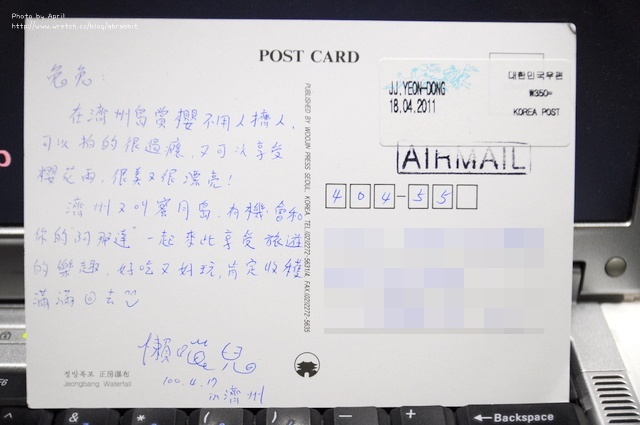 Photo by April
http://www.wretch.cc/blog/abrabbit
POST CARD
兔兔：
在濟州島賞櫻不用人擠人，
可以拍的很過癮，又可以享受
櫻花雨，很美又很漂亮！
濟州又叫蜜月島，有機會和
你的"阿那達"一起來此享受旅遊
的樂趣，好吃又好玩，肯定收穫
滿滿回去
懶 兒
100.4.17
in 濟州
정방폭포 正房瀑布
Jeongbang Waterfall
PUBLISHED BY WOOJIN PRESS SEOUL, KOREA TEL:02)2272-5631/4 FAX:02)2272-5635
JJ.YEON-DONG
18.04.2011
대한민국우편
₩350
KOREA POST
AIRMAIL
404-55
F6
Backspace